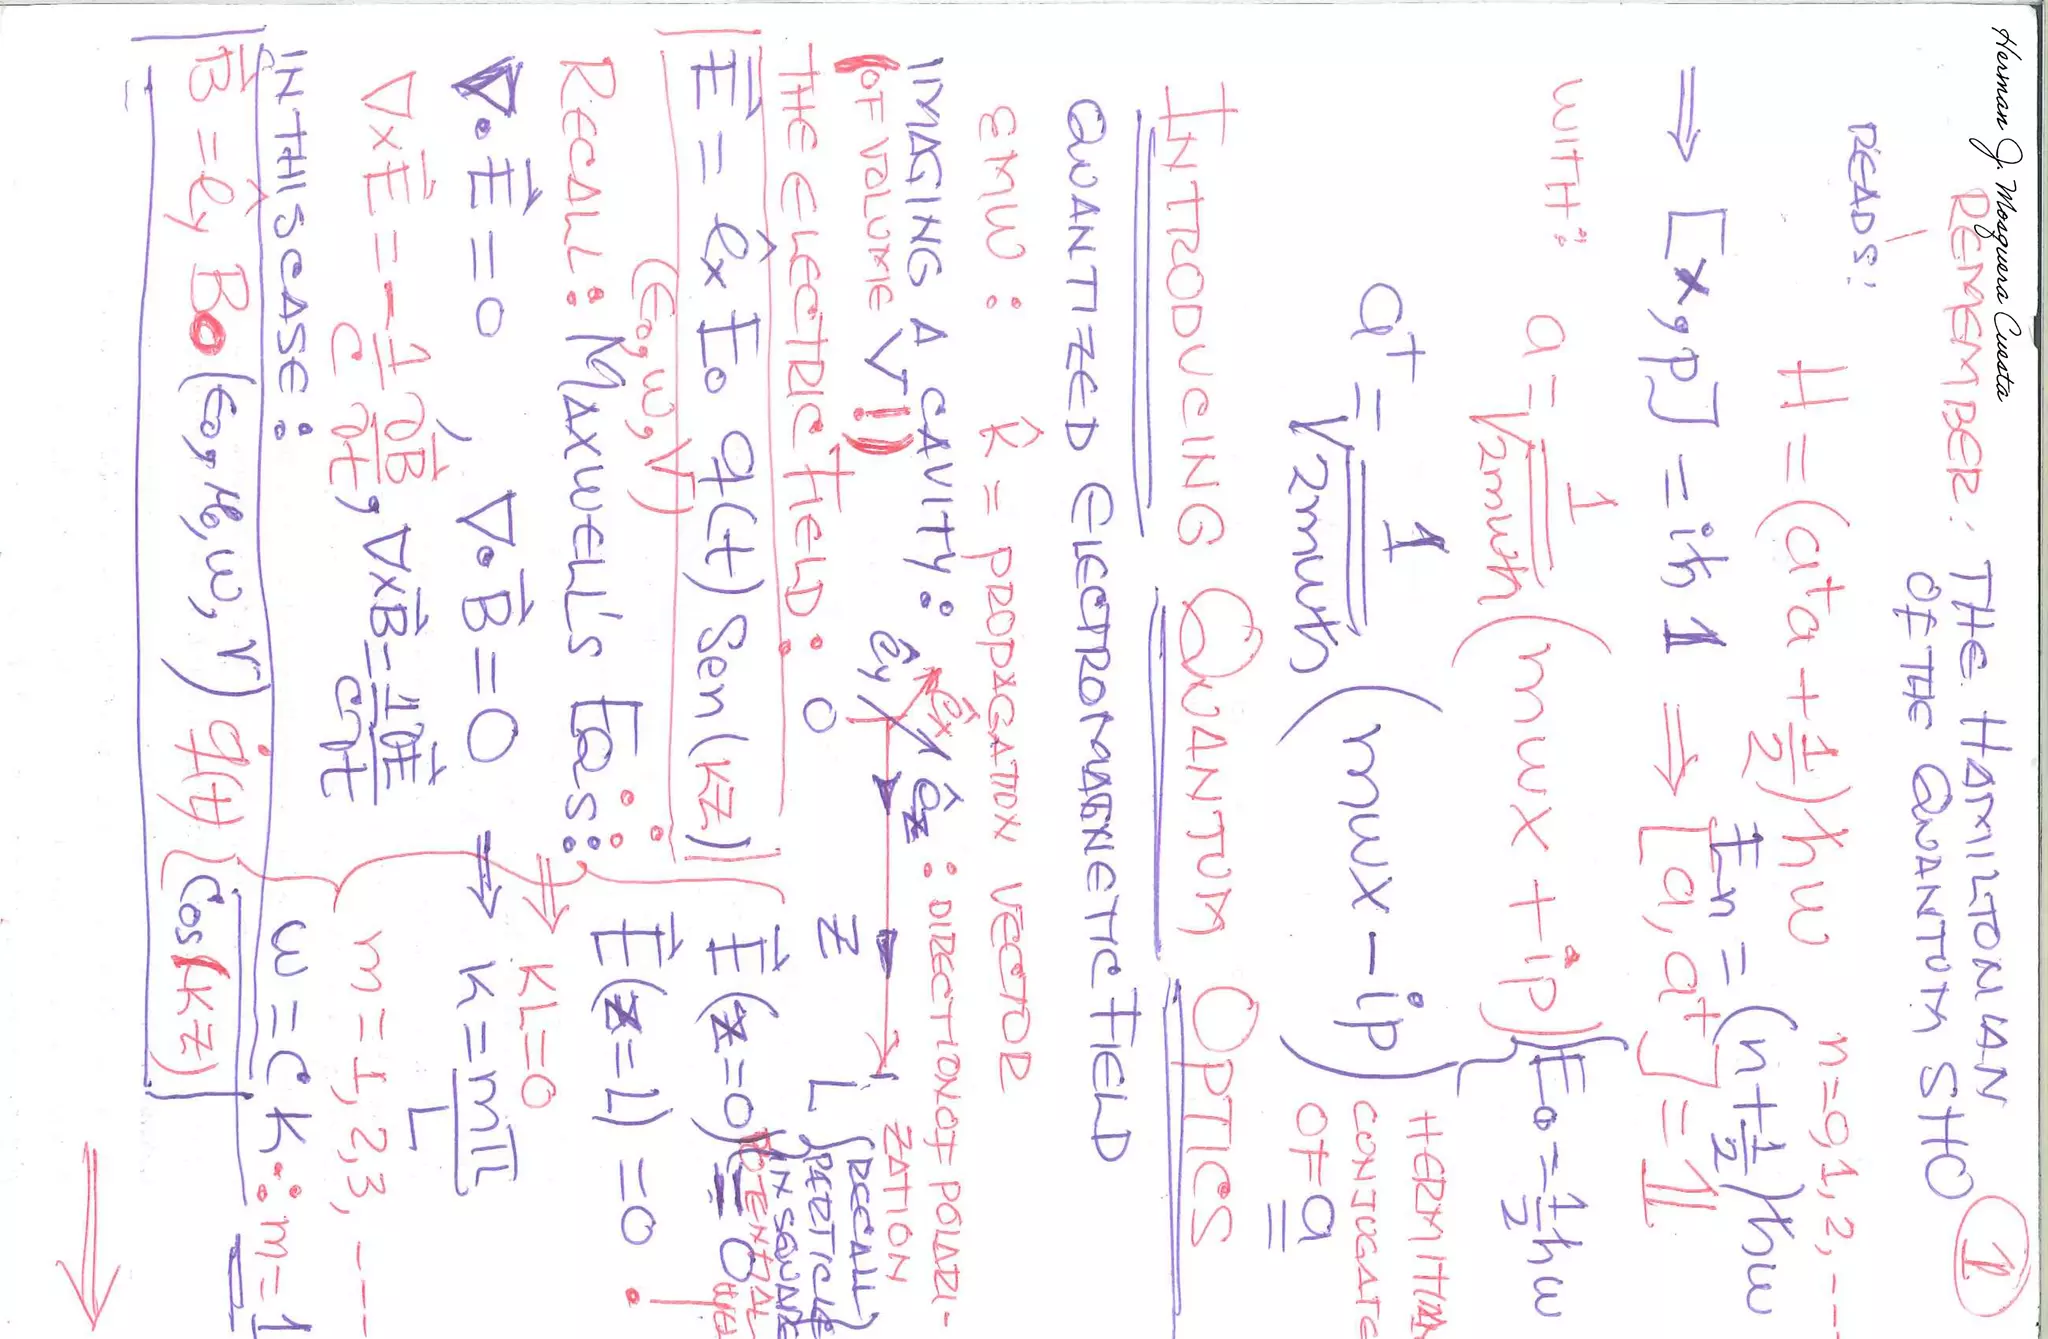 Herman J. Mosquera Cuesta
REMEMBER: THE HAMILTONIAN
OF THE QUANTUM SHO
①
READS:
H = (a†a + 1/2) ħω n=0,1,2,---
En = (n+1/2)ħω
⇒ [x,p] = iħ 1 ⇒ [a,a†] = 1
WITH: a = 1/√2mωħ (mωx + ip)
E0 = 1/2 ħω
a† = 1/√2mωħ (mωx - ip)
HERMITIAN
CONJUGATE
OF = a
INTRODUCING QUANTUM OPTICS
QUANTIZED ELECTROMAGNETIC FIELD
EMW: k̂ = PROPAGATION VECTOR
IMAGING A CAVITY: êx êy êz : DIRECTION OF POLARI-
ZATION
(OF VOLUME V!)
0 Z L (RECALL)
PARTICLE
IN SQUARE
POTENTIAL
THE ELECTRIC FIELD:
E⃗ = êx E0 q(t) Sen(kz) E⃗(z=0) = 0
(ε0,ω,V)
E⃗(z=L) = 0.
RECALL: MAXWELL'S EQS:
⇒ KL=0
∇·E⃗ = 0, ∇·B⃗ = 0 ⇒ K = mπ/L
∇×E⃗ = -1/c ∂B⃗/∂t, ∇×B⃗ = 1/c ∂E⃗/∂t
m = 1,2,3,---
IN THIS CASE:
ω = cK ∴ m = 1
B⃗ = êy B0 (ε0,μ0,ω,V) q̇(t) Cos(kz)
⇒